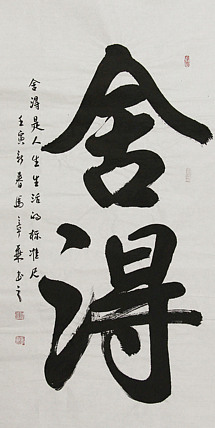 舍得
舍得是人生生活的标准尺
壬寅新春馬